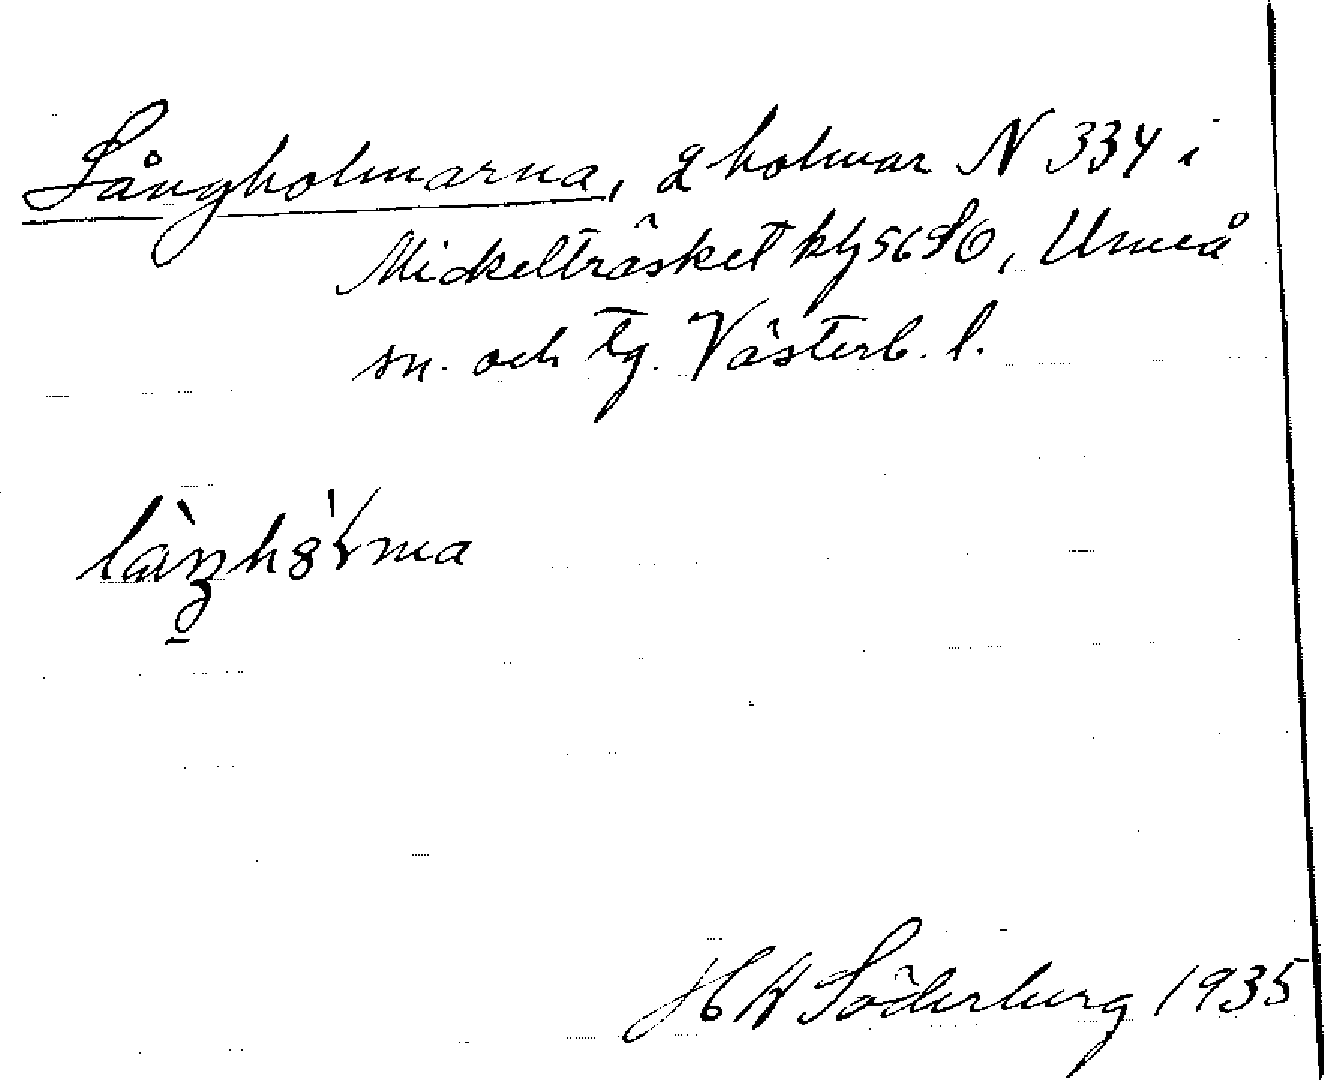 Långholmarna, 2 holmar N 334 i
Mickelträsket kbl 56 SO, Umeå
sn. och tg. Västerb. l.
H W Söderberg 1935